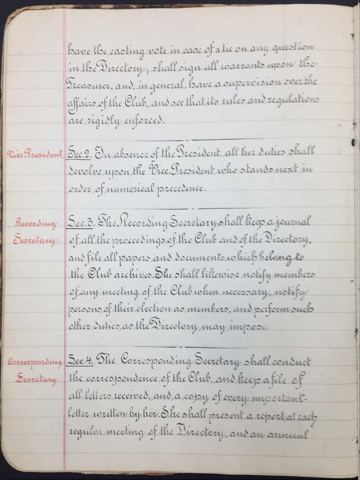 have the casting vote in case of a tie on any question
in the Directory, shall sign all warrants upon the
Treasurer, and, in general, have a supervision over the
affairs of the Club, and see that its rules and regulations
are rigidly enforced.
Vice President Sec. 2. In absence of the President all her duties shall
devolve upon the Vice President who stands next in
order of numerical precedence.
Recording Sec. 3. The Recording Secretary shall keep a journal
Secretary. of all the proceedings of the Club and of the Directory,
and file all papers and documents which belong to
the Club archives. She shall likewise notify members
of any meeting of the Club when necessary, notify
persons of their election as members, and perform such
other duties as the Directory may impose.
Corresponding Sec. 4. The Corresponding Secretary shall conduct
Secretary. the correspondence of the Club, and keep a file of
all letters received, and a copy of every important
letter written by her. She shall present a report at each
regular meeting of the Directory, and an annual